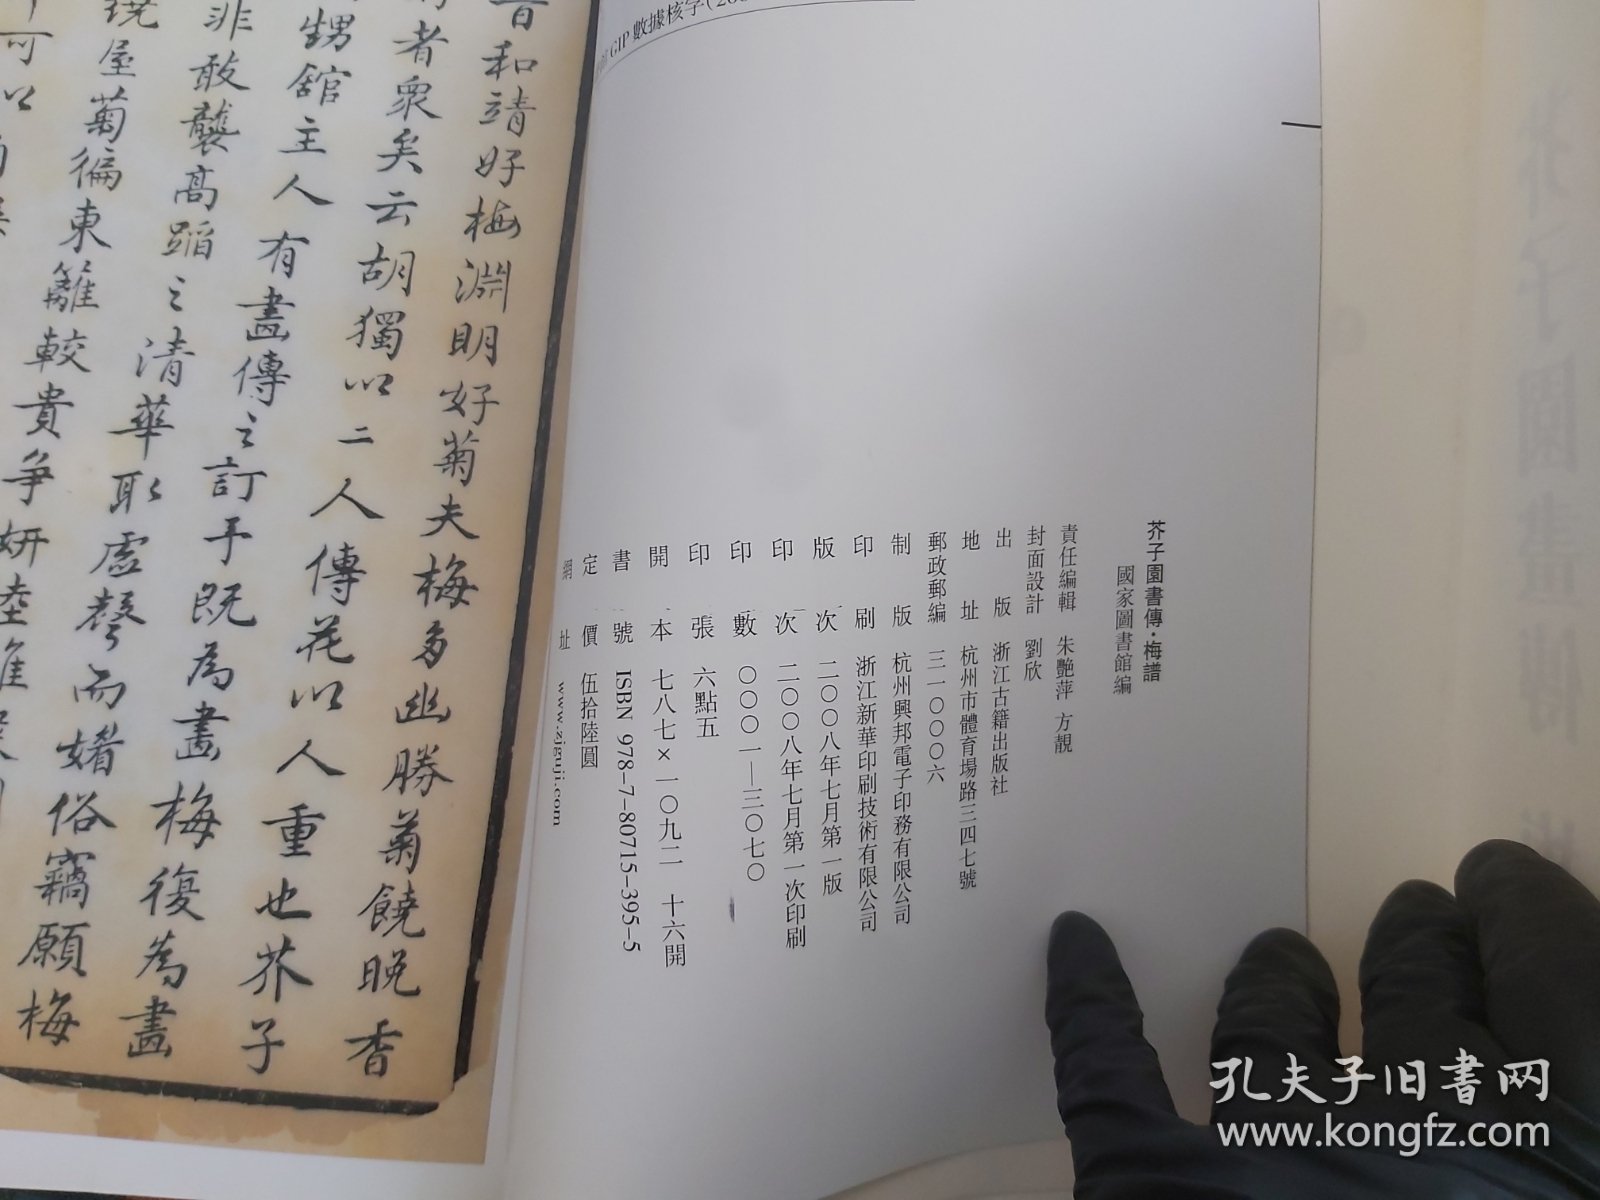 數據核字
芥子園書傳·梅譜
國家圖書館編
責任編輯 朱艷萍 方靚
封面設計 劉欣
出版 浙江古籍出版社
地址 杭州市體育場路三四七號
郵政郵編 三一〇〇〇六
制版 杭州興邦電子印務有限公司
印刷 浙江新華印刷技術有限公司
版次 二〇〇八年七月第一版
印次 二〇〇八年七月第一次印刷
印數 〇〇〇一—三〇七〇
印張 六點五
開本 七八七×一〇九二 十六開
書號 ISBN 978-7-80715-395-5
定價 伍拾陸圓
網址 www.zjguji.com
和靖好梅淵明好菊夫梅多幽勝菊饒晚香
者衆矣云胡獨以二人傳花以人重也芥子
甥舘主人有畫傳之訂予既為畫梅復為畫
非敢襲高蹈之清華耻虛聲而媚俗竊願梅
屋菊徧東籬較貴爭妍
可以
芥子園畫傳
孔夫子旧书网
www.kongfz.com